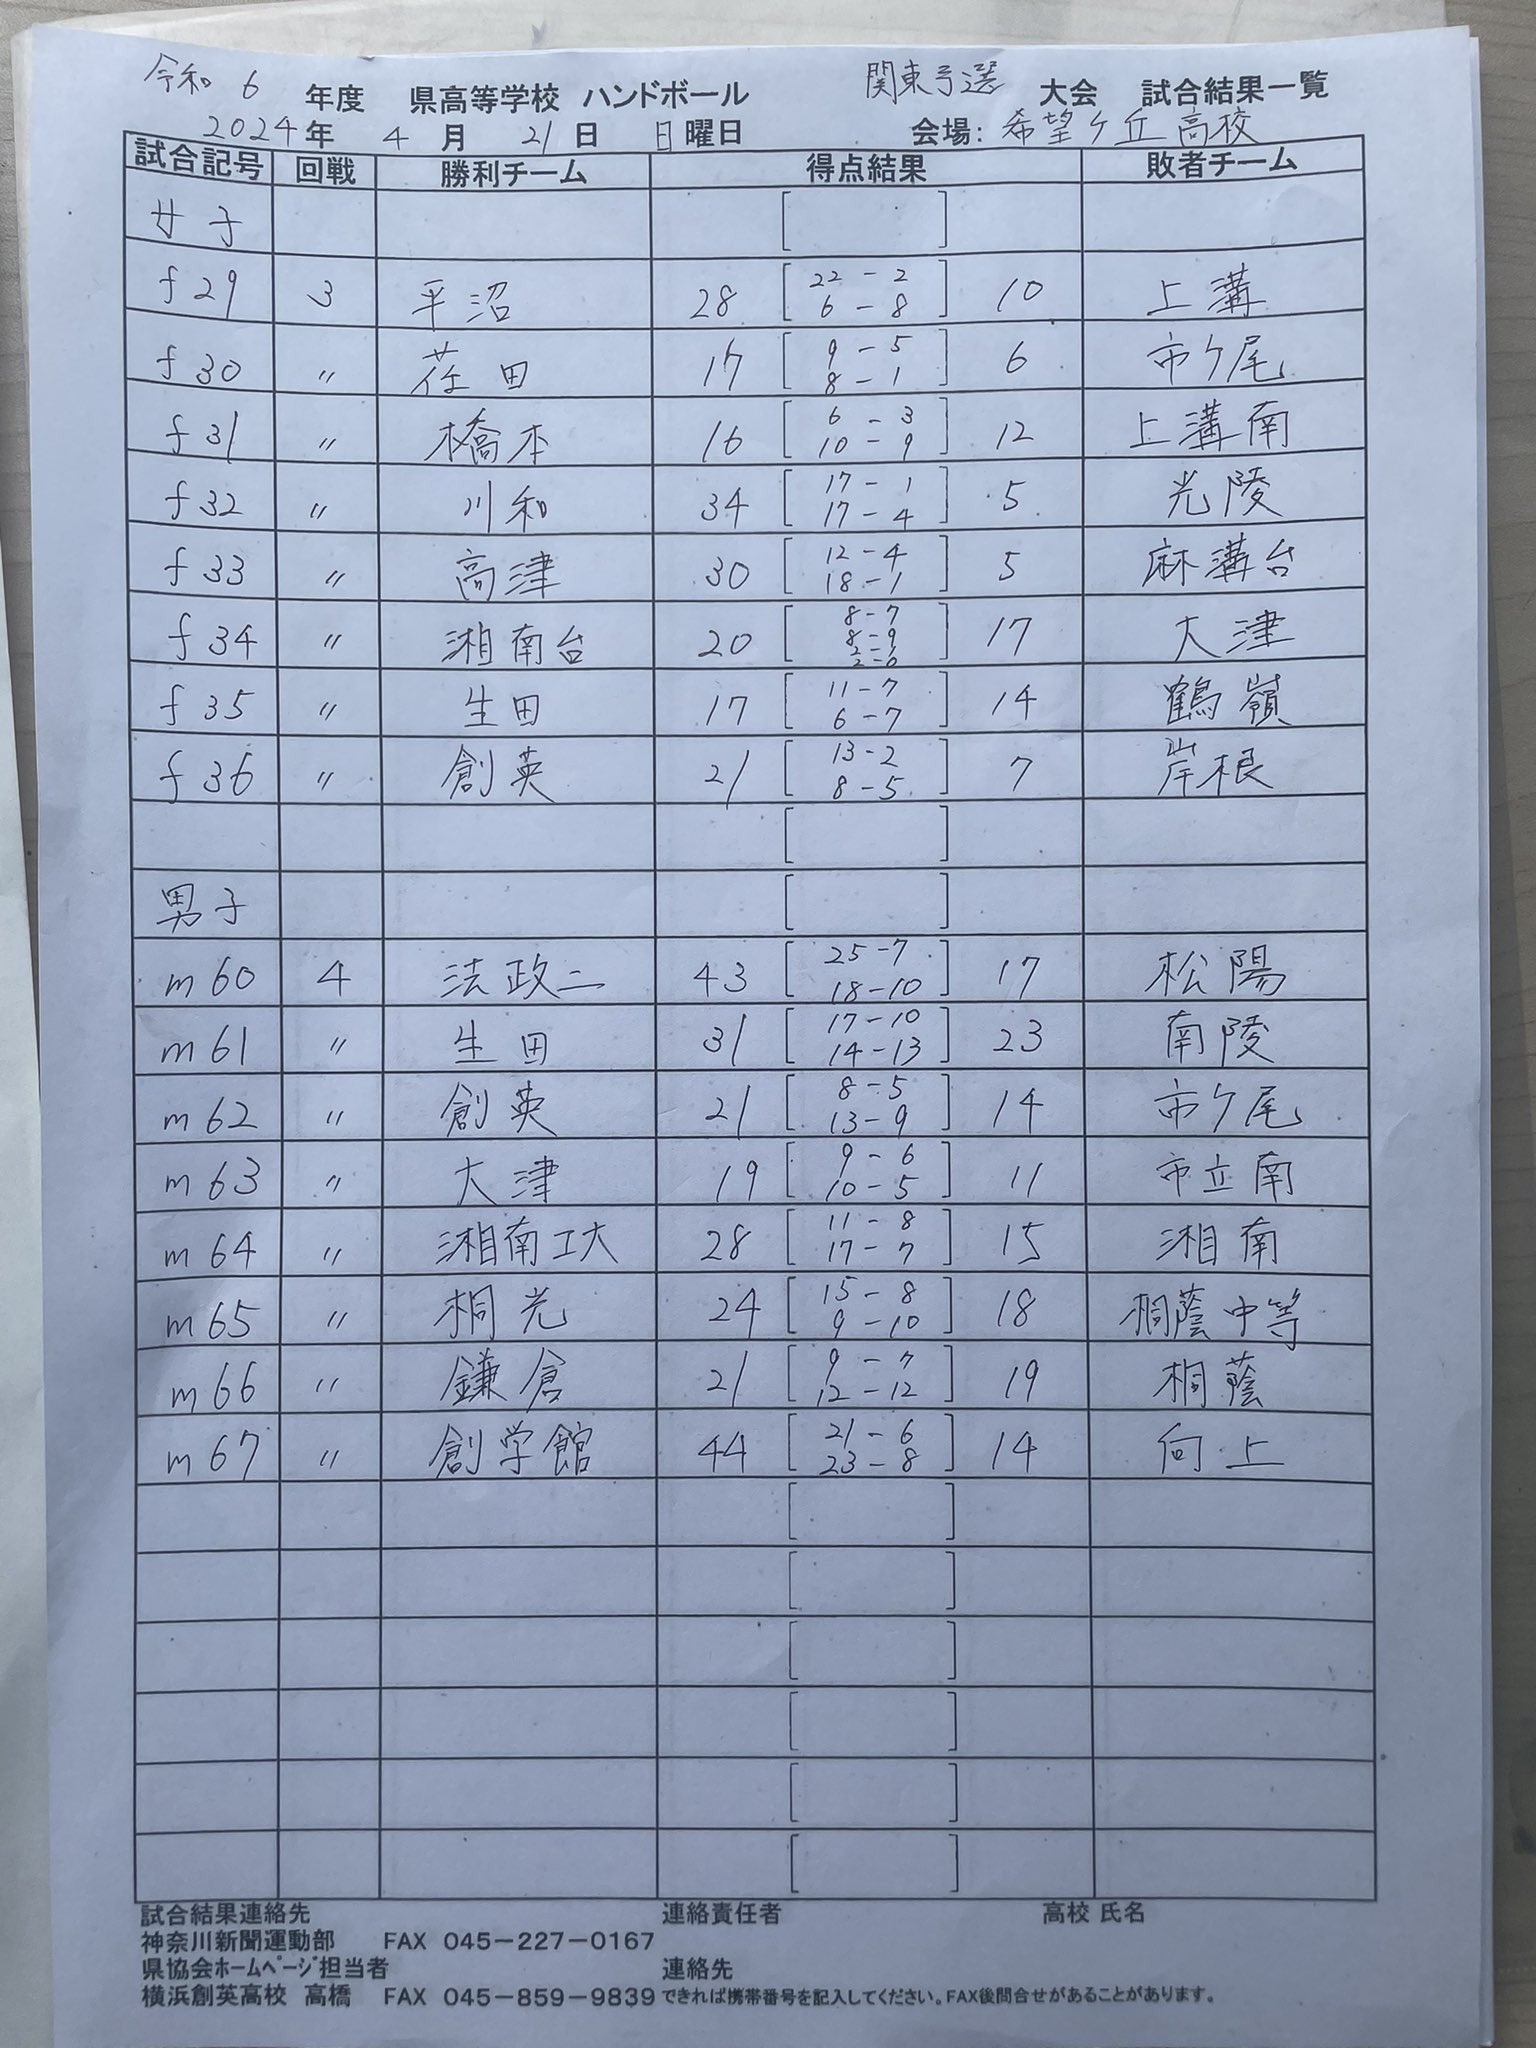 令和 6 年度 県高等学校 ハンドボール 関東予選 大会 試合結果一覧
2024年 4 月 21日 日曜日 会場: 希望ケ丘高校
試合記号 回戦 勝利チーム 得点結果 敗者チーム
女子
f29 3 平沼 28 [22-2 6-8] 10 上溝
f30 〃 荏田 17 [9-5 8-1] 6 市ケ尾
f31 〃 橋本 16 [6-3 10-9] 12 上溝南
f32 〃 川和 34 [17-1 17-4] 5 光陵
f33 〃 高津 30 [12-4 18-1] 5 麻溝台
f34 〃 湘南台 20 [8-7 8-9 2-1 2-0] 17 大津
f35 〃 生田 17 [11-7 6-7] 14 鶴嶺
f36 〃 創英 21 [13-2 8-5] 7 岸根
男子
m60 4 法政二 43 [25-7 18-10] 17 松陽
m61 〃 生田 31 [17-10 14-13] 23 南陵
m62 〃 創英 21 [8-5 13-9] 14 市ケ尾
m63 〃 大津 19 [9-6 10-5] 11 市立南
m64 〃 湘南工大 28 [11-8 17-7] 15 湘南
m65 〃 桐光 24 [15-8 9-10] 18 桐蔭中等
m66 〃 鎌倉 21 [9-7 12-12] 19 桐蔭
m67 〃 創学館 44 [21-6 23-8] 14 向上
試合結果連絡先 連絡責任者 高校 氏名
神奈川新聞運動部 FAX 045-227-0167
県協会ホームページ担当者 連絡先
横浜創英高校 高橋 FAX 045-859-9839 できれば携帯番号を記入してください。FAX後問合せがあることがあります。